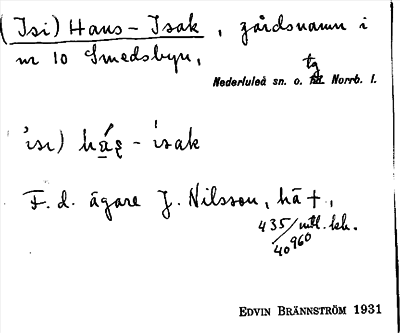 (Isi) Hans-Isak, gårdsnamn i
nr 10 Smedsbyn,
Nederluleå sn. o. tg Norrb. l.
isi) ha̲ʹs - ísak
F. d. ägare J. Nilsson, hä +,
435/40960 mtl. sk.
EDVIN BRÄNNSTRÖM 1931